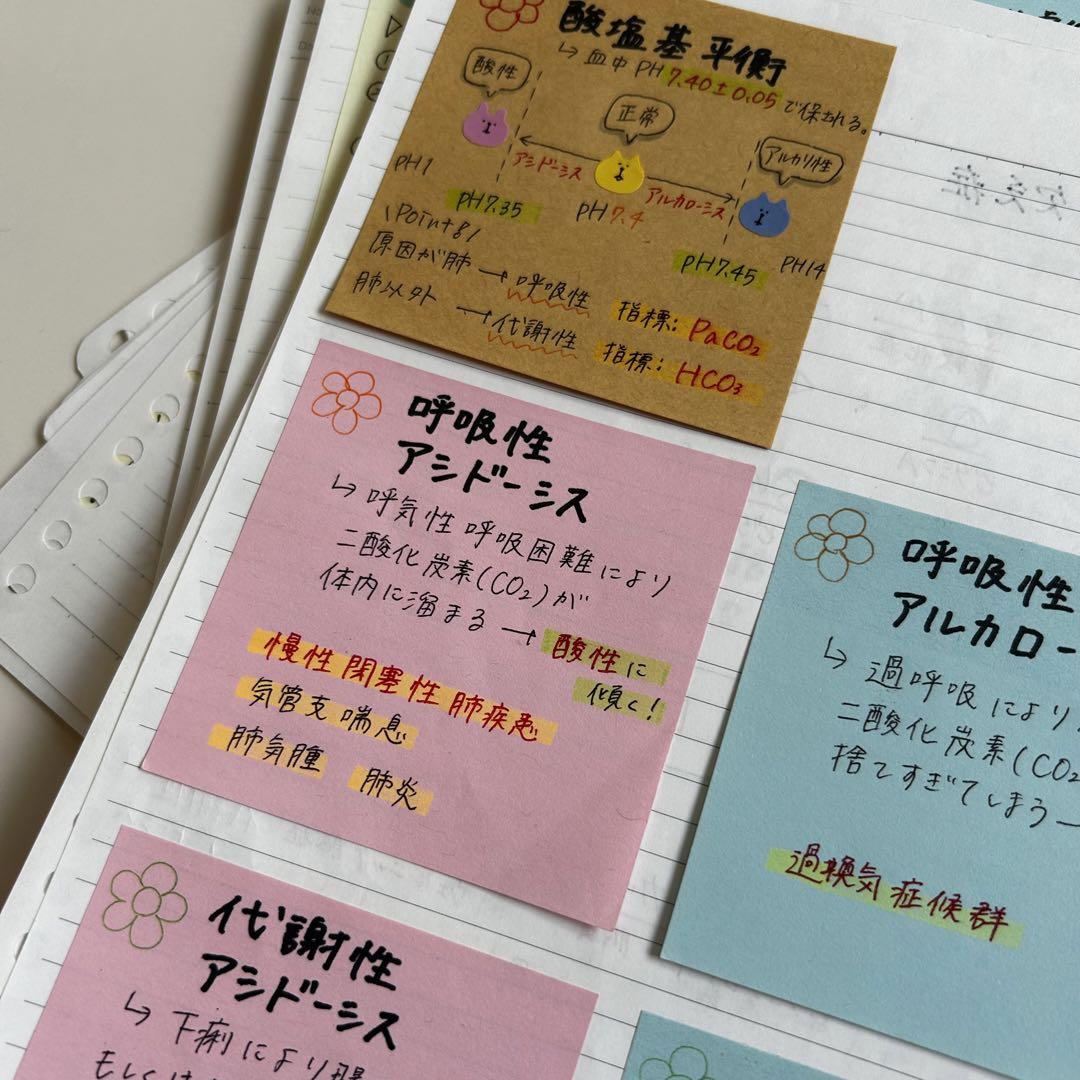 酸塩基平衡
↳ 血中 PH 7.40±0.05 で保たれる。
酸性
正常
アルカリ性
アシドーシス
アルカローシス
PH1
PH7.35
PH7.4
PH7.45
PH14
\Point8/
原因が肺→呼吸性 指標: PaCO₂
肺以外→代謝性 指標: HCO₃
呼吸性
アシドーシス
↳ 呼気性呼吸困難により
二酸化炭素(CO₂)が
体内に溜まる→酸性に
傾く!
慢性閉塞性肺疾患
気管支喘息
肺気腫 肺炎
呼吸性
アルカロー
↳ 過呼吸により
二酸化炭素(CO₂
捨てすぎてしまう→
過換気症候群
代謝性
アシドーシス
↳ 下痢により腸
もしくは